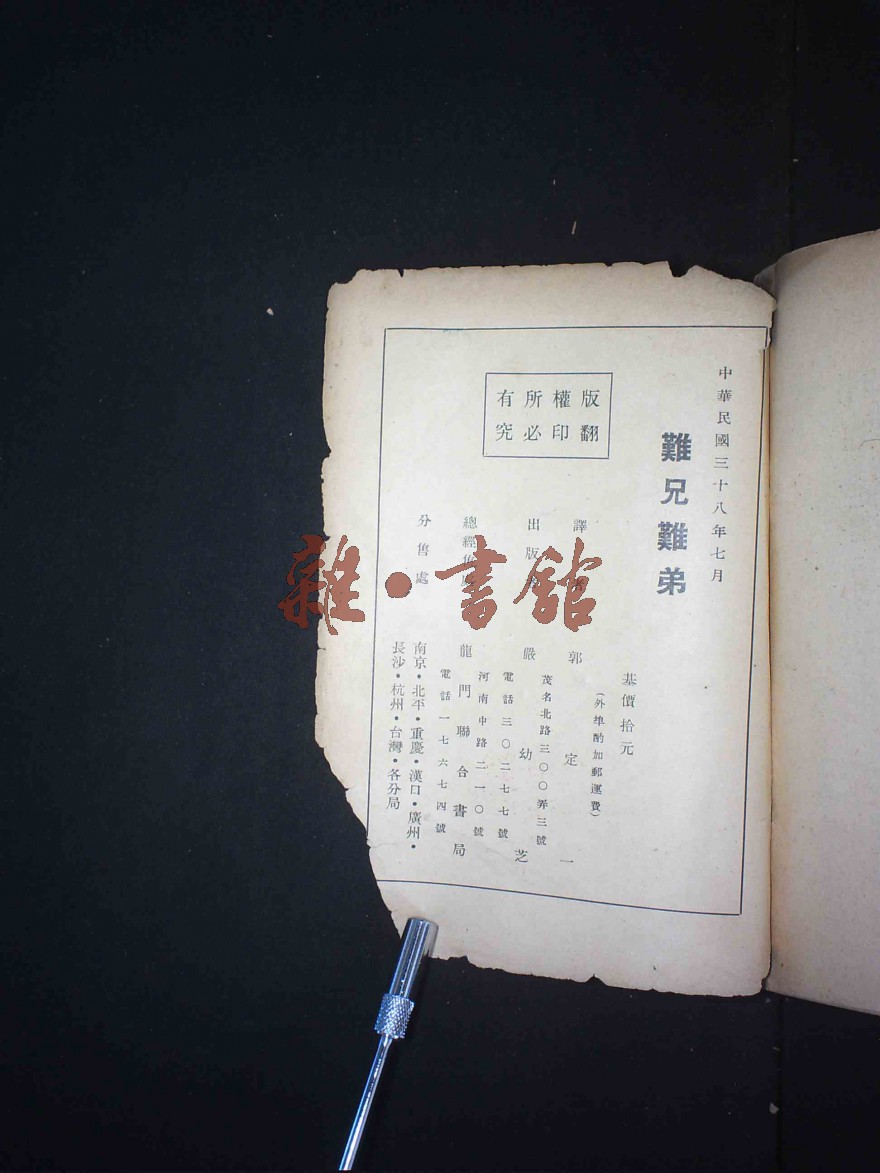 中華民國三十八年七月
難兄難弟
版權所有
翻印必究
基價拾元
(外埠酌加郵運費)
譯者 郭定一
出版者 嚴幼芝
茂名北路三〇〇弄三號
電話三〇二七七號
總經售處 龍門聯合書局
河南中路二一〇號
電話一七六七四號
分售處
南京·北平·重慶·漢口·廣州·
長沙·杭州·台灣·各分局
雜·書館